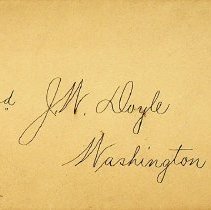 d J. W. Doyle
Washington